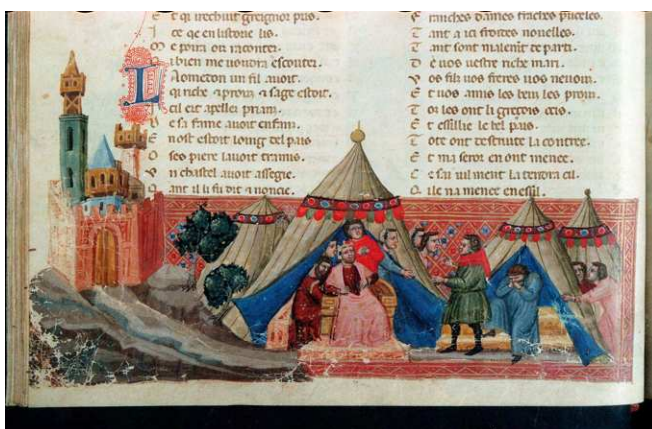 E t qi rechuit greignor pris.
I ce qe en listoire lis.
poira on raconter.
bien me uoudra escouter.
L Aometon un fil auoit.
qi riche 7 prouz 7 sage estoit.
cil eit apellez priam.
sa fame auoit enfanz.
E nost estoit loing del pais
O ses piere lauoit tramis.
V n chastel auoit assegie.
Q ant il li fu dit 7 noncie.
F ranches dames fraches puceles.
T ant a ici froides nouelles.
T ant sont parti.
D e uos uestre riche mari.
V os filz uos freres uos neuouz.
E t uos amis les bein les prouz.
T oz les ont li greçois ocis.
E t essillie le bel pais.
T ote ont destruite la contree.
E t ma seror en ont menee.
uil ment la tendra cil.
menee en essil.